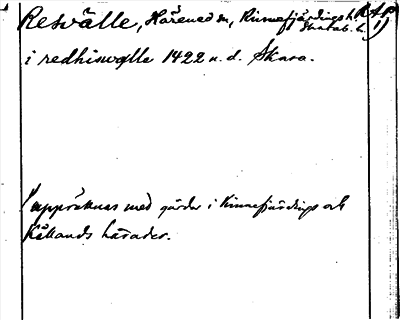 Resvälle, Härened sn, Kinnefjärdings h. RAp
Skarab. l. 1)
i redhiswalle 1422 u. d. Skara.
1) uppräknas med gårdar i Kinnefjärdings och
Kållands härader.